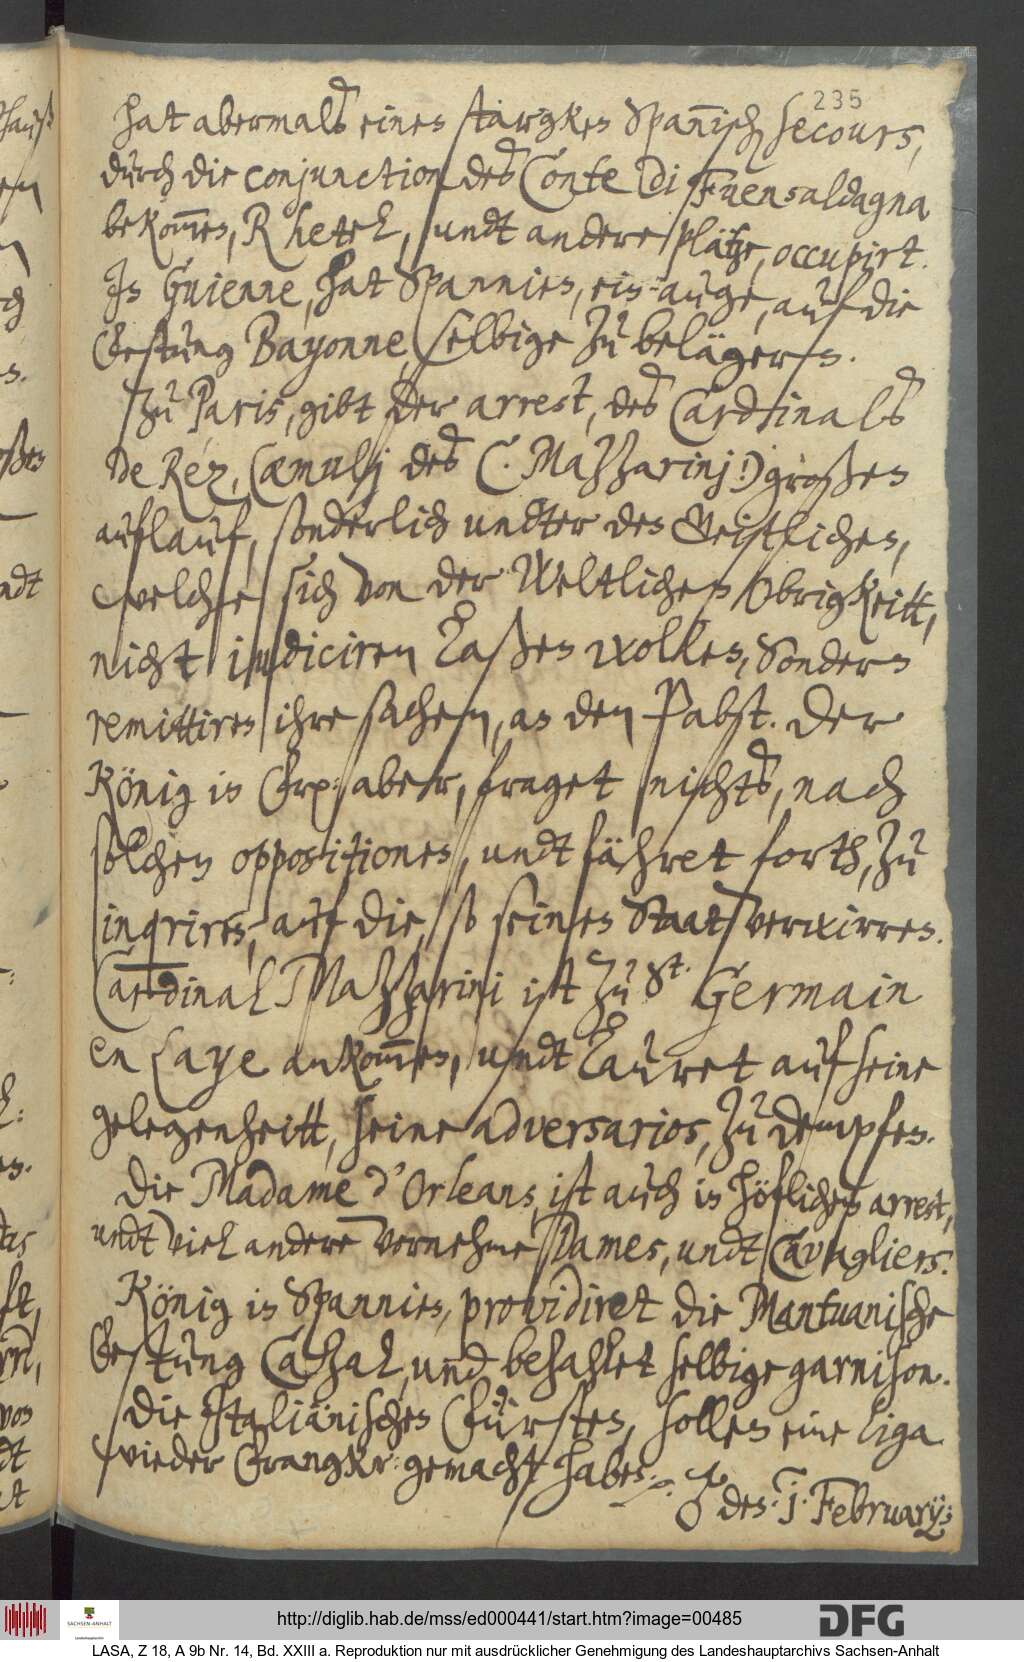 235
hat abermalß einen starcken Spannisch secours,
durch die conjunction deß Conte Di Fuensaldagna
bekommen, Rhetel, undt andere plätze, occupirt.
In Guienne, hat Spannien, ein auge, auf die
Vestung Bayonne, selbige zu belägern.
Zu Paris, gibt der arrest, deß Cardinalß
De Réz, (æmulj deß C. Mazzarinj!) großen
auflauf, sonderlich undter den Geistlichen,
welche sich von der Weltlichen Obrigkeitt,
nicht iudiciren laßen wollen, Sondern
remittiren ihre sachen, an den Pabst. Der
König in Frp: aber, fraget nichtß, nach
solchen oppositionen, undt fähret forth, zu
inqriren, auf die, so seinen Staat verwirren.
Cardinal Mazzarini ist zu St. Germain
en Laye ankommen, undt lauret auf seine
gelegenheitt, seine adversarios, zu dempfen.
Die Madame d'Orleans, ist auch in höflichem arrest,
undt viel andere vornehme Dames, undt Cavagliers.
König in Spannien, providiret die Mantuanische
Vestung Casal, und besahlet selbige garnison.
Die Italiänischen Fürsten, sollen eine liga
wieder Frangkr: gemacht haben.
des: 1. February:
http://diglib.hab.de/mss/ed000441/start.htm?image=00485
SACHSEN-ANHALT
Landeshauptarchiv
DFG
LASA, Z 18, A 9b Nr. 14, Bd. XXIII a. Reproduktion nur mit ausdrücklicher Genehmigung des Landeshauptarchivs Sachsen-Anhalt